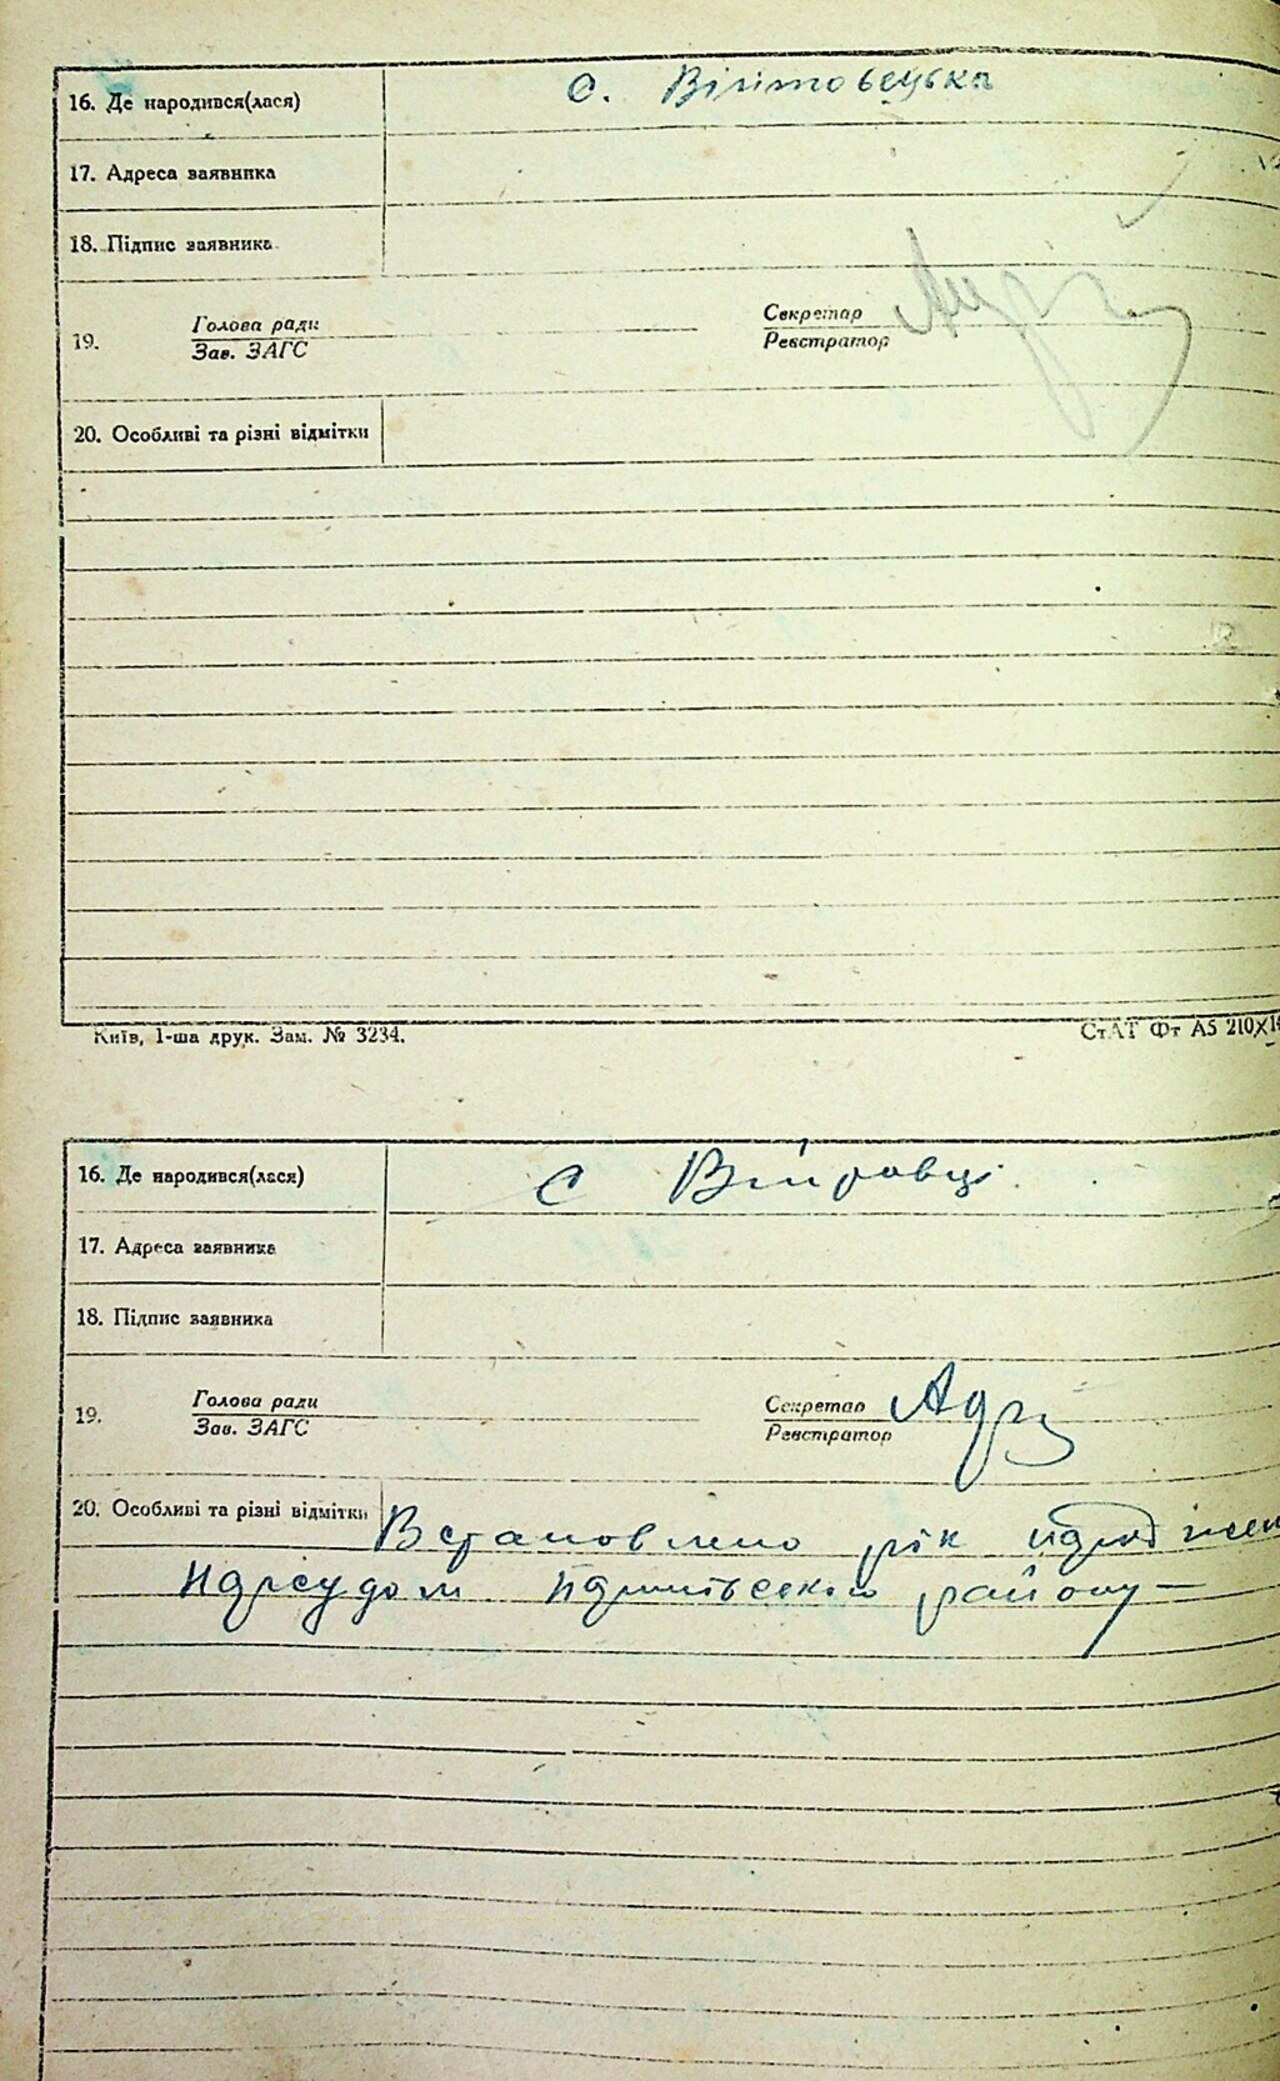 16. Де народився(лася) с. Війтовецька
17. Адреса заявника
18. Підпис заявника
19. Голова ради Секретар
Зав. ЗАГС Реєстратор
20. Особливі та різні відмітки
Київ, 1-ша друк. Зам. № 3234. СтАТ Фт А5 210X14
16. Де народився(лася) с
17. Адреса заявника
18. Підпис заявника
19. Голова ради Секретар
Зав. ЗАГС Реєстратор
20. Особливі та різні відмітки Встановлено рік народжен
Нарсудом району —